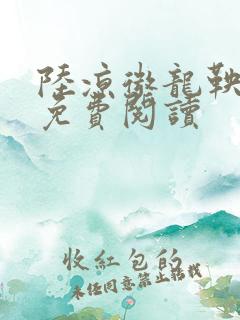 陸涼徵龍鞅
免費閱讀
收紅包的
未经同意禁止转载